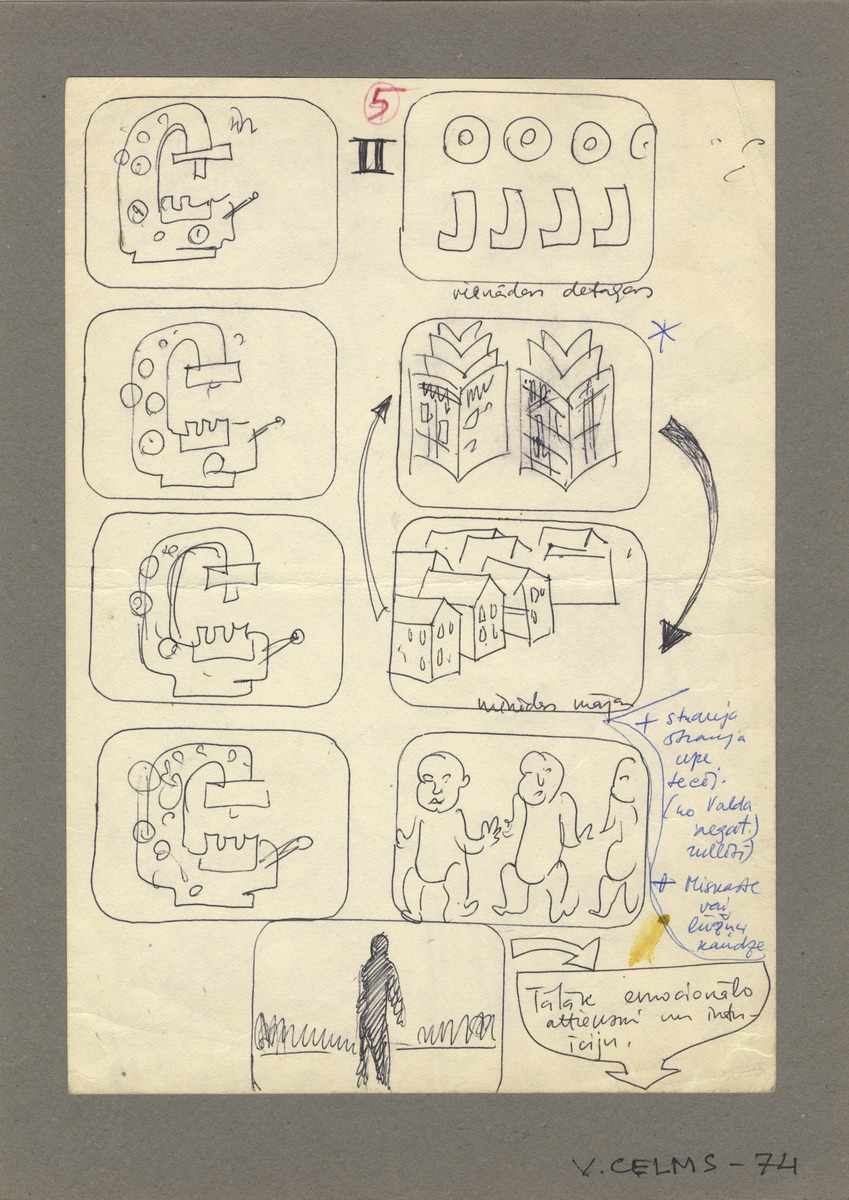 5
II
vienādas detaļas
*
mājas
+ strauja
strauja
upe
tecēj.
(no Valda
negat.)
+ Miskaste
vai
lūžņu
kaudze
Tālāk emocionālo
attieksmi un intu-
īciju.
V. CELMS - 74